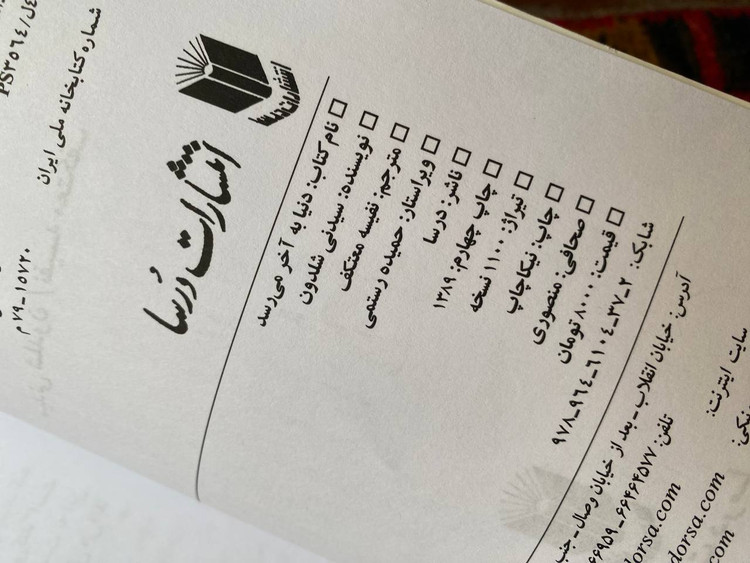 PS۳۵۶٤/ل٤
شماره کتابخانه ملی ایران
م۷۹-۱۵۷۲۰
انتشارات درسا
انتشارات دُرسا
□ نام کتاب: دنیا به آخر می‌رسد
□ نویسنده: سیدنی شلدون
□ مترجم: نفیسه معتکف
□ ویراستار: حمیده رستمی
□ ناشر: درسا
□ چاپ چهارم: ۱۳۸۹
□ تیراژ: ۱۱۰۰ نسخه
□ چاپ: نیکاچاپ
□ صحافی: منصوری
□ قیمت: ۸۰۰۰ تومان
شابک: ۲-۳۷-۶۱۰٤-۹۶٤-۹۷۸
آدرس: خیابان انقلاب - بعد از خیابان وصال - جنب
تلفن: ۶۶۴۶۴۵۷۷-۶۶۹۵۹
سایت اینترنت: dorsa.com
dorsa.com